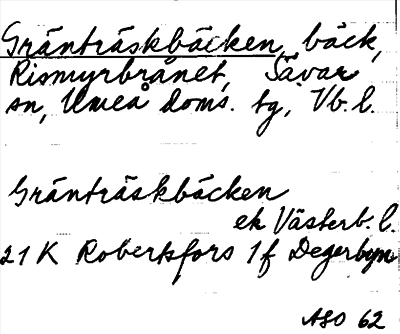 Gränträskbäcken, bäck,
Rismyrbrånet, Sävar
sn, Umeå doms. tg, Vb. l.
Gränträskbäcken
ek Västerb. l.
21 K Robertsfors 1f Degerbyn
ASO 62